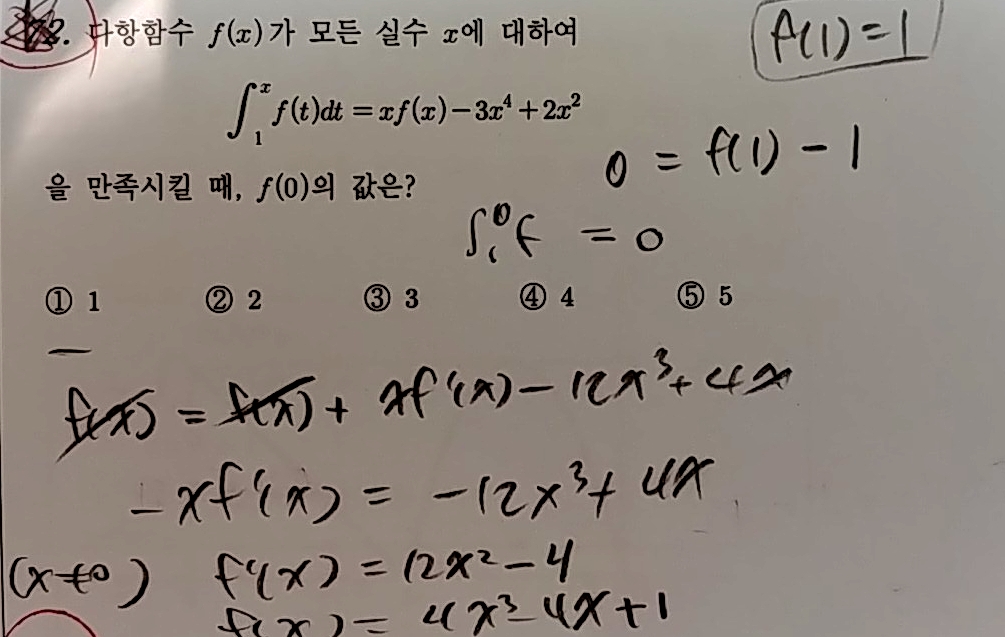 다항함수 f(x)가 모든 실수 x에 대하여
f(1)=1
∫₁ˣ f(t)dt = xf(x)-3x⁴+2x²
0 = f(1) - 1
을 만족시킬 때, f(0)의 값은?
∫₁⁰ f = 0
① 1 ② 2 ③ 3 ④ 4 ⑤ 5
f(x) = f(x) + xf'(x) - 12x³ + 4x
- xf'(x) = -12x³ + 4x
(x≠0) f'(x) = 12x² - 4
f(x) = 4x³ - 4x + 1